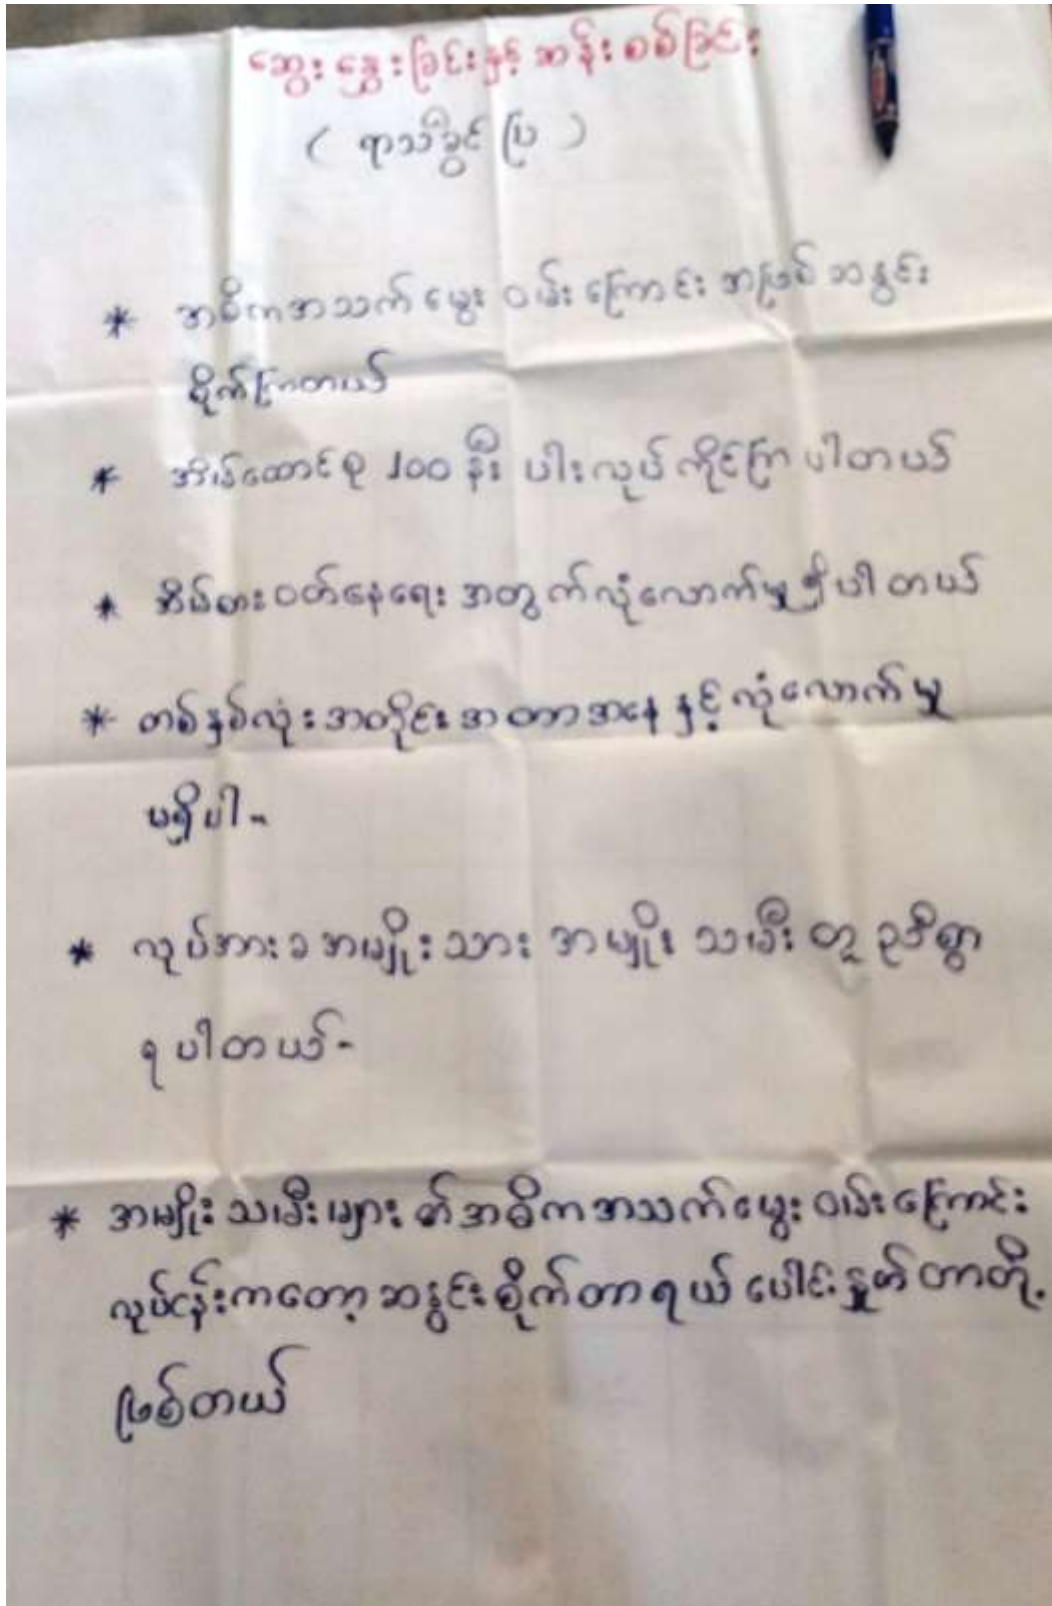 ဆွေးနွေးခြင်းနှင့် ဆန်းစစ်ခြင်း
( ရာသီခွင်ပြ )
* အဓိကအသက်မွေးဝမ်းကြောင်းအဖြစ် ဆနွင်း
စိုက်ကြတယ်
* အိမ်ထောင်စု ၂၀၀ နီးပါးလုပ်ကိုင်ကြပါတယ်
* အိမ်စားဝတ်နေရေးအတွက်လုံလောက်မှုရှိပါတယ်
* တစ်နှစ်လုံးအတိုင်းအတာအနေနှင့်လုံလောက်မှု
မရှိပါ-
* လုပ်အားခ အမျိုးသား အမျိုးသမီး တူညီစွာ
ရပါတယ်-
* အမျိုးသမီးများ၏အဓိကအသက်မွေးဝမ်းကြောင်း
လုပ်ငန်းကတော့ဆနွင်းစိုက်တာရယ် ပေါင်းနှုတ်တာတို့
ဖြစ်တယ်